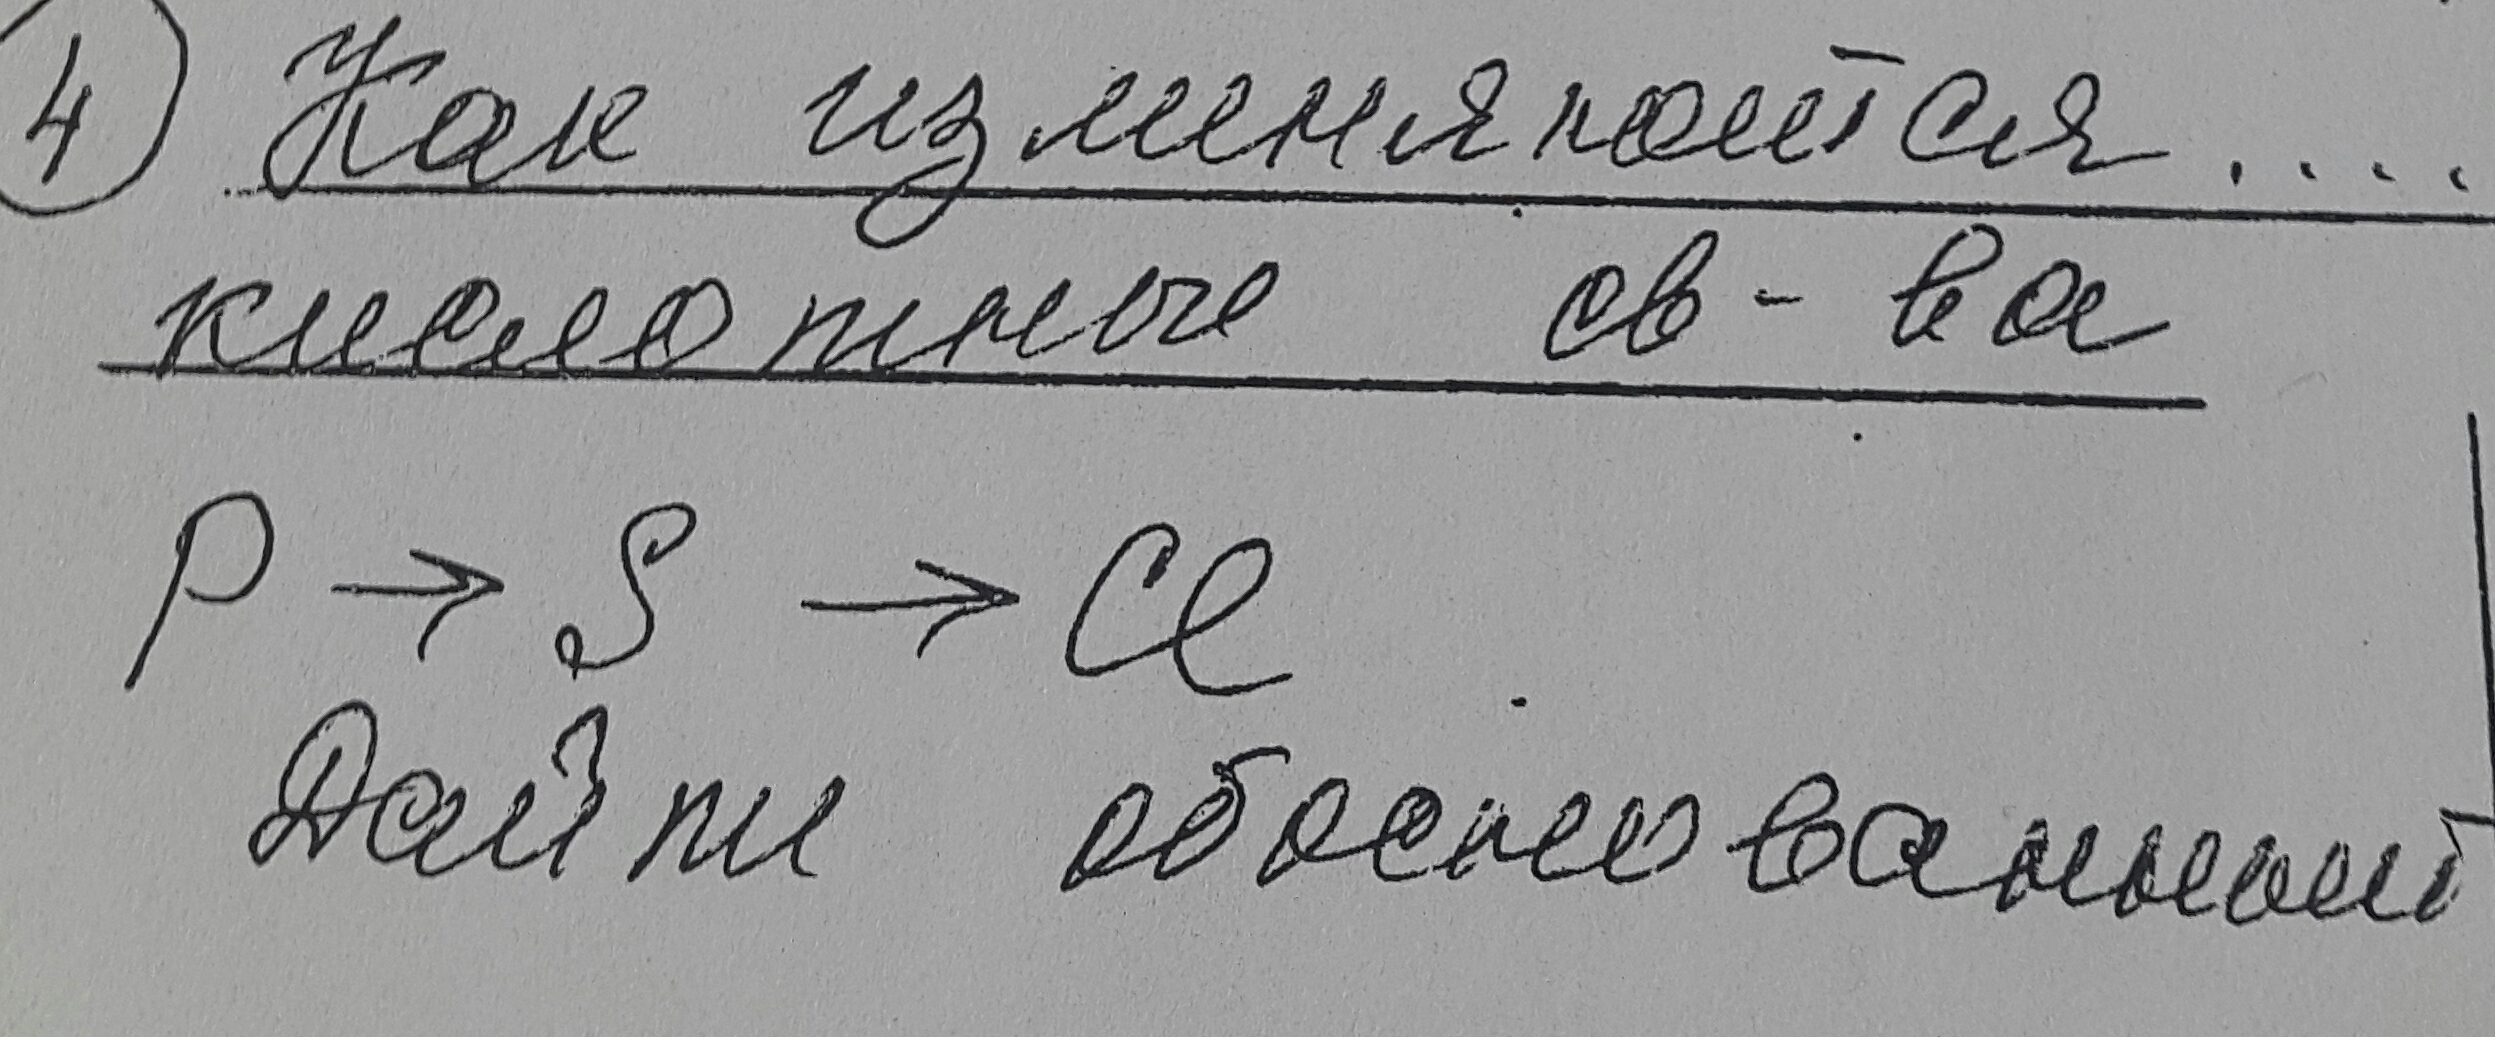 4 Как изменяются....
кислотные св-ва
P → S → Cl
Дайте обоснованный